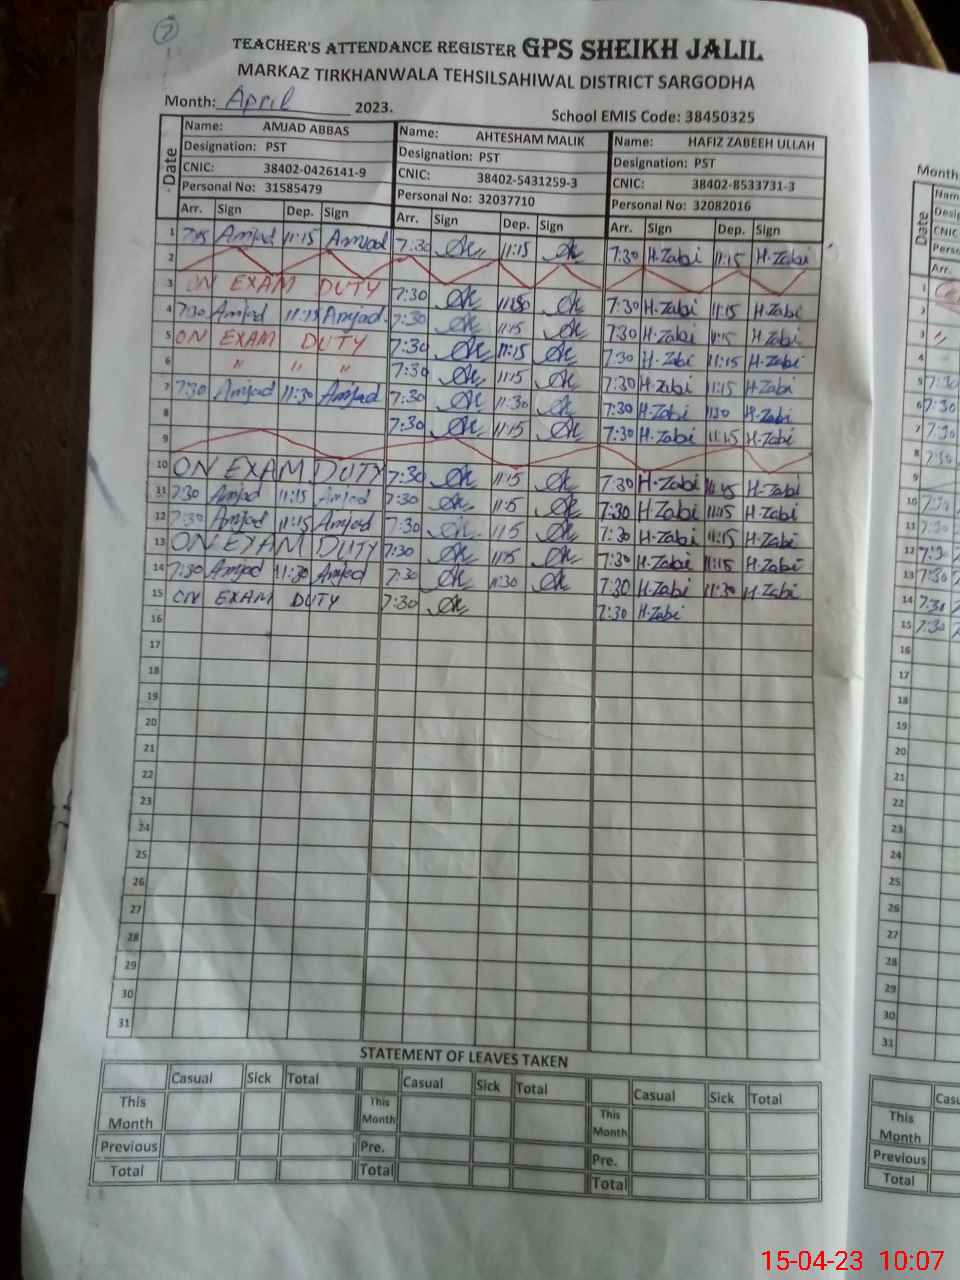 7
TEACHER'S ATTENDANCE REGISTER GPS SHEIKH JALIL
MARKAZ TIRKHANWALA TEHSILSAHIWAL DISTRICT SARGODHA
Month: April 2023.
School EMIS Code: 38450325
Date Name: AMJAD ABBAS Name: AHTESHAM MALIK Name: HAFIZ ZABEEH ULLAH
Designation: PST Designation: PST Designation: PST
CNIC: 38402-0426141-9 CNIC: 38402-5431259-3 CNIC: 38402-8533731-3
Personal No: 31585479 Personal No: 32037710 Personal No: 32082016
Arr. Sign Dep. Sign Arr. Sign Dep. Sign Arr. Sign Dep. Sign
1 Amjad 11:15 Amjad 7:30 11:15 7:30 H.Zabi 11:15 H.Zabi
2
3 ON EXAM DUTY 7:30 7:30 H.Zabi 11:15 H.Zabi
4 7:30 Amjad 11:15 Amjad 7:30 11:15 7:30 H.Zabi 11:15 H.Zabi
5 ON EXAM DUTY 7:30 11:15 7:30 H.Zabi 11:15 H.Zabi
6 " " " 7:30 11:15 7:30 H.Zabi 11:15 H.Zabi
7 7:30 Amjad 11:30 Amjad 7:30 11:30 7:30 H.Zabi 11:30 H.Zabi
8 7:30 11:15 7:30 H.Zabi 11:15 H.Zabi
9
10 ON EXAM DUTY 7:30 11:15 7:30 H.Zabi 11:15 H.Zabi
11 7:30 Amjad 11:15 Amjad 7:30 11:15 7:30 H.Zabi 11:15 H.Zabi
12 7:30 Amjad 11:15 Amjad 7:30 11:15 7:30 H.Zabi 11:15 H.Zabi
13 ON EXAM DUTY 7:30 11:15 7:30 H.Zabi 11:15 H.Zabi
14 7:30 Amjad 11:30 Amjad 7:30 11:30 7:30 H.Zabi 11:30 H.Zabi
15 ON EXAM DUTY 7:30 7:30 H.Zabi
16
17
18
19
20
21
22
23
24
25
26
27
28
29
30
31
STATEMENT OF LEAVES TAKEN
Casual Sick Total Casual Sick Total Casual Sick Total
This Month This Month This Month
Previous Pre. Pre.
Total Total Total
Month
Date
Arr.
1
2
3 "
4
5 7:30
6 7:30
7 7:30
8 7:30
9
10 7:30
11 7:30
12 7:30
13 7:30
14 7:30
15 7:30
16
17
18
19
20
21
22
23
24
25
26
27
28
29
30
31
This Month
Previous
Total
15-04-23 10:07